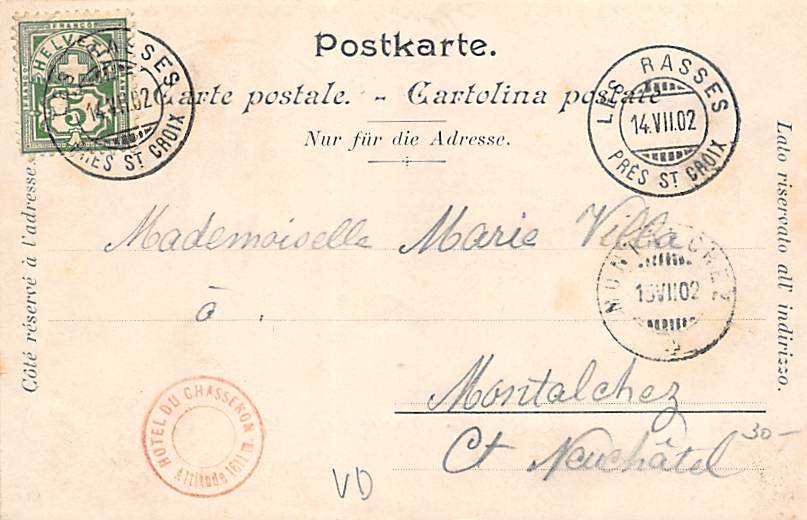 FRANCO
HELVETIA
5
LES RASSES
14.VII.02
PRÈS ST CROIX
Postkarte.
Carte postale. - Cartolina postale
Nur für die Adresse.
LES RASSES
14.VII.02
PRÈS ST CROIX
Côté réservé à l'adresse.
Lato riservato all' indirizzo.
Mademoiselle Marie Villa
à .
MONTALCHEZ
15VII02
Montalchez
Ct Neuchâtel
30-
HOTEL DU CHASSERON
Altitude 1611 m.
VD